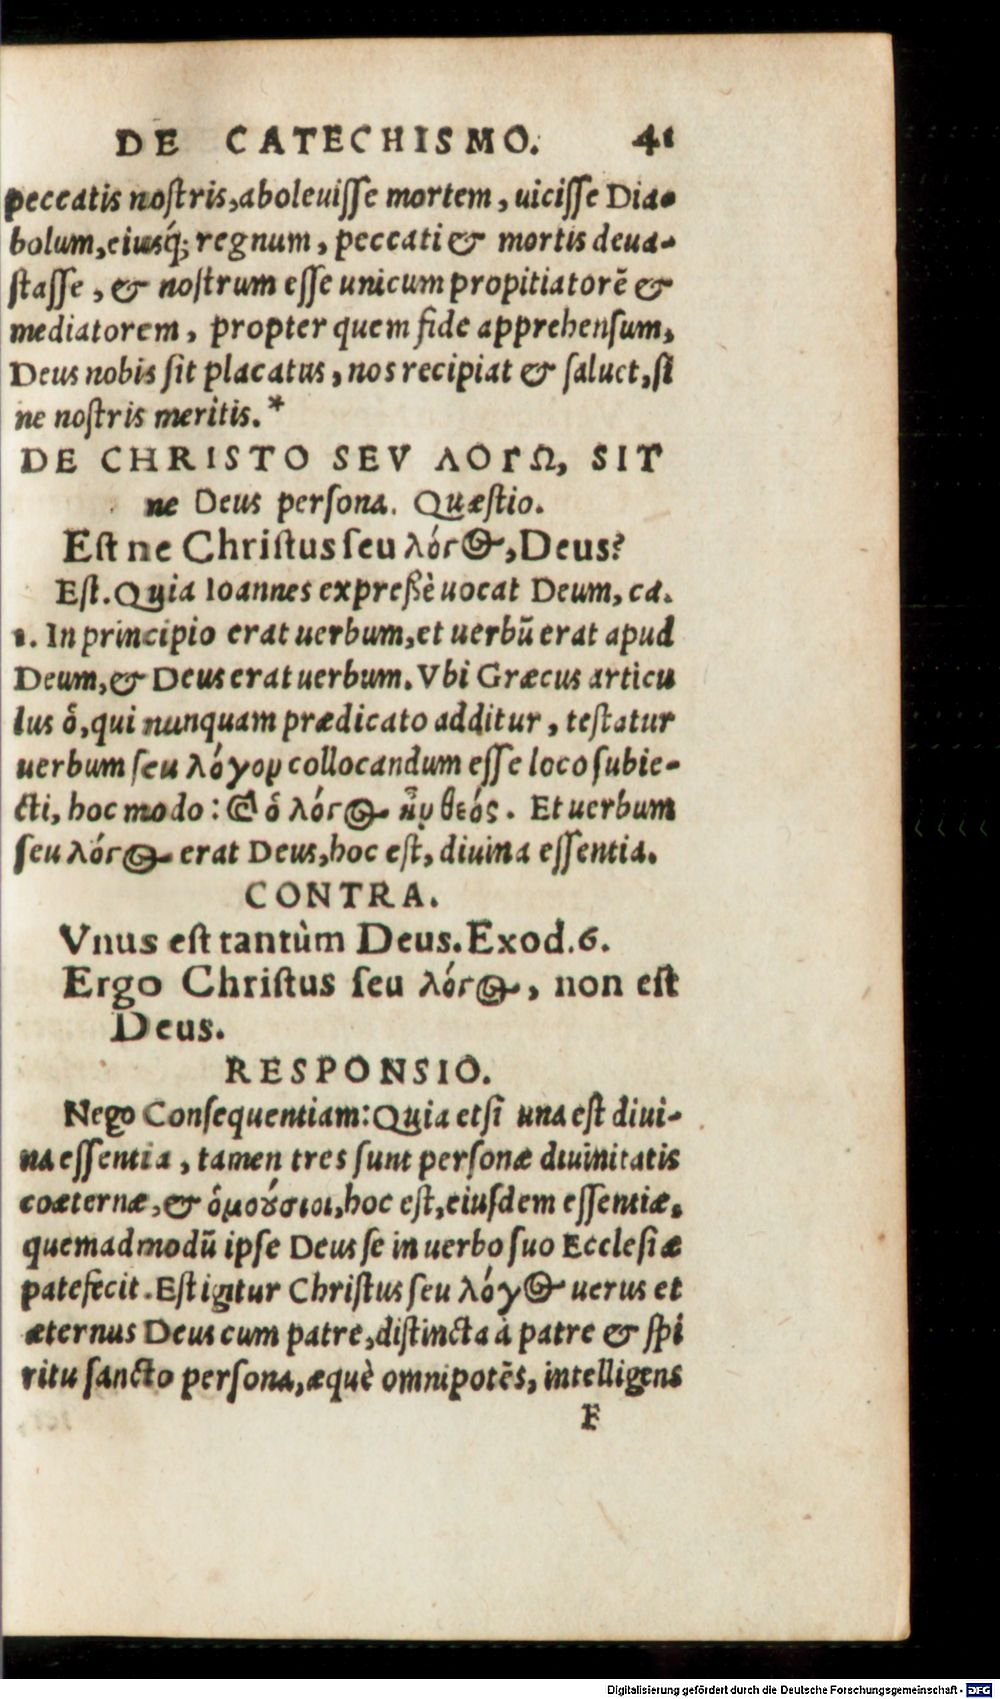 DE CATECHISMO. 41
peccatis noſtris, aboleuiſſe mortem, uiciſſe Dia-
bolum, eiusq́; regnum, peccati & mortis deua-
ſtaſſe, & noſtrum eſſe unicum propitiatorē &
mediatorem, propter quem fide apprehenſum,
Deus nobis ſit placatus, nos recipiat & ſaluet, ſi
ne noſtris meritis.*
DE CHRISTO SEV ΛΟΓΩ, SIT
ne Deus perſona. Quæſtio.
Eſt ne Chriſtus ſeu λόγος, Deus?
Eſt. Quia Ioannes expreßè uocat Deum, ca.
1. In principio erat uerbum, et uerbū erat apud
Deum, & Deus erat uerbum. Vbi Græcus articu
lus ὁ, qui nunquam prædicato additur, teſtatur
uerbum ſeu λόγον collocandum eſſe loco ſubie-
cti, hoc modo: Καὶ ὁ λόγος ἦν θεός. Et uerbum
ſeu λόγος erat Deus, hoc eſt, diuina eſſentia.
CONTRA.
Vnus eſt tantùm Deus. Exod. 6.
Ergo Chriſtus ſeu λόγος, non eſt
Deus.
RESPONSIO.
Nego Conſequentiam: Quia etſi una eſt diui-
na eſſentia, tamen tres ſunt perſonæ diuinitatis
coæternæ, & ὁμούσιοι, hoc eſt, eiuſdem eſſentiæ,
quemadmodū ipſe Deus ſe in uerbo ſuo Eccleſiæ
patefecit. Eſt igitur Chriſtus ſeu λόγος uerus et
æternus Deus cum patre, diſtincta à patre & ſpi
ritu ſancto perſona, æquè omnipotēs, intelligens
F
Digitalisierung gefördert durch die Deutsche Forschungsgemeinschaft - DFG